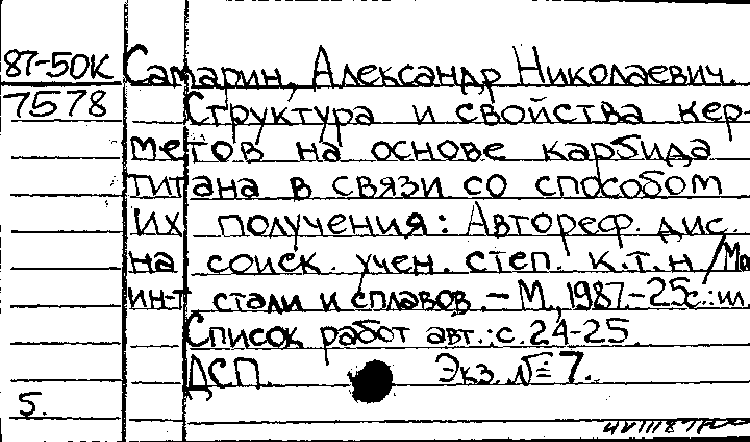 87-50К Самарин, Александр Николаевич.
7578 Структура и свойства кер-
метов на основе карбида
титана в связи со способом
их получения: Автореф. дис.
на соиск. учен. степ. к.т.н /Мо
ин-т стали и сплавов. - М., 1987.-25с.:ил.
Список работ авт.: с. 24-25.
ДСП. Экз. № 7.
5.